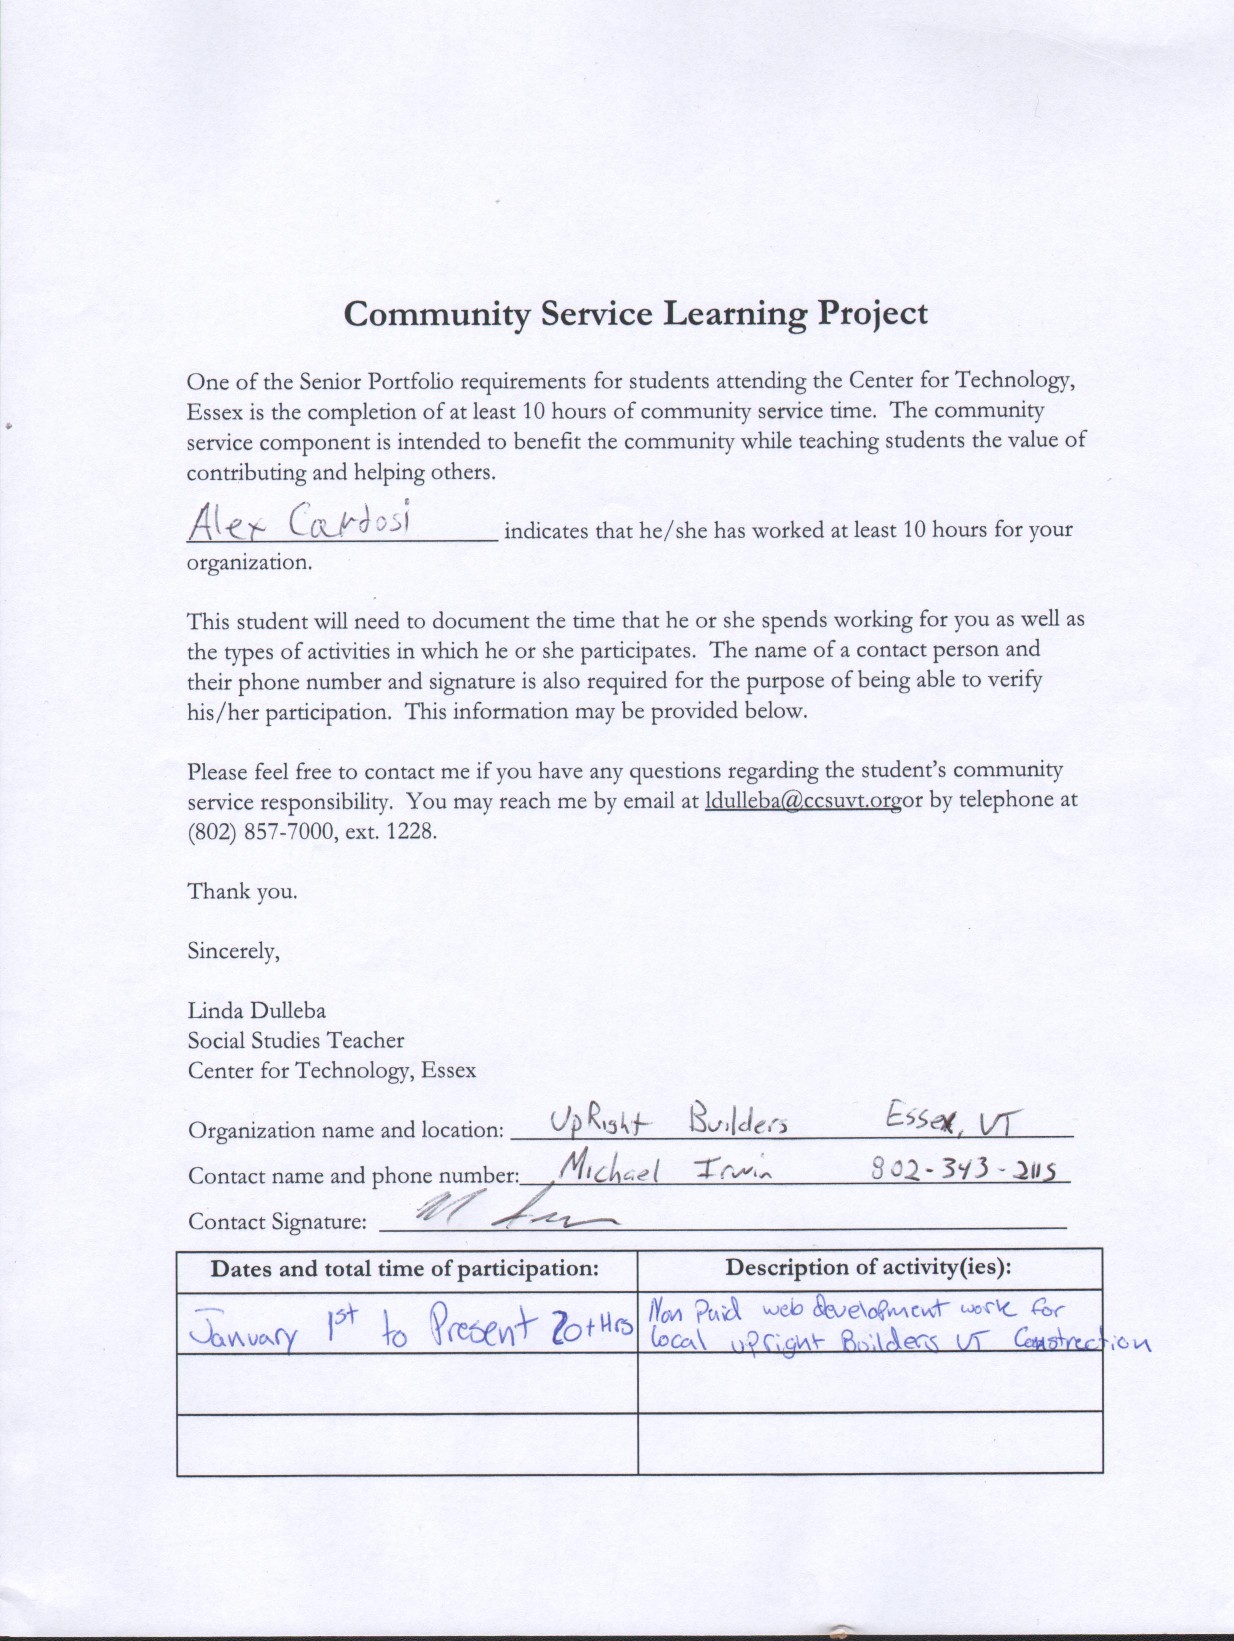 Community Service Learning Project
One of the Senior Portfolio requirements for students attending the Center for Technology,
Essex is the completion of at least 10 hours of community service time.  The community
service component is intended to benefit the community while teaching students the value of
contributing and helping others.
Alex Cardosi indicates that he/she has worked at least 10 hours for your
organization.
This student will need to document the time that he or she spends working for you as well as
the types of activities in which he or she participates.  The name of a contact person and
their phone number and signature is also required for the purpose of being able to verify
his/her participation.  This information may be provided below.
Please feel free to contact me if you have any questions regarding the student's community
service responsibility.  You may reach me by email at ldulleba@ccsuvt.orgor by telephone at
(802) 857-7000, ext. 1228.
Thank you.
Sincerely,
Linda Dulleba
Social Studies Teacher
Center for Technology, Essex
Organization name and location: UpRight Builders Essex, VT
Contact name and phone number: Michael Irwin 802-343-2115
Contact Signature:
Dates and total time of participation: Description of activity(ies):
January 1st to Present 20+Hrs Non Paid web development work for
local upright Builders VT Constrection